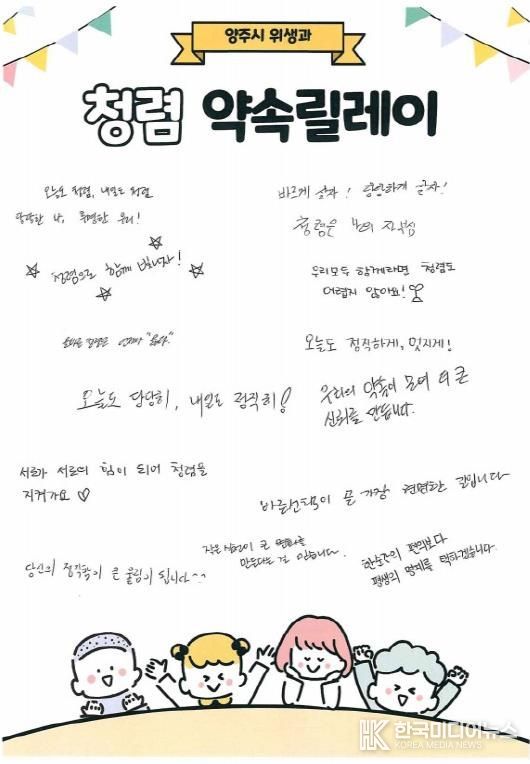 양주시 위생과
청렴 약속릴레이
오늘도 청렴, 내일도 청렴
당당한 나, 투명한 우리!
바르게 살자! 당당하게 살자!
청렴은 나의 자부심
청렴으로 함께 빛나자!
우리모두 함께라면 청렴도
어렵지 않아요!
오늘도 정직하게, 멋지게!
오늘도 당당히, 내일도 정직히!
우리의 약속이 모여 더 큰
신뢰를 만듭니다.
서로가 서로의 힘이 되어 청렴을
지켜가요 ♡
바른선택이 곧 가장 현명한 길입니다
작은 실천이 큰 변화를
만든다는 걸 믿습니다.
한순간의 편의보다
평생의 명예를 택하겠습니다.
당신의 정직함이 큰 울림이 됩니다^^
한국미디어뉴스
KOREA MEDIA NEWS